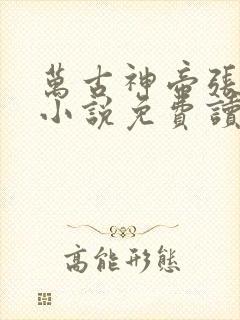 萬古神帝張
小說免費讀
高能形態